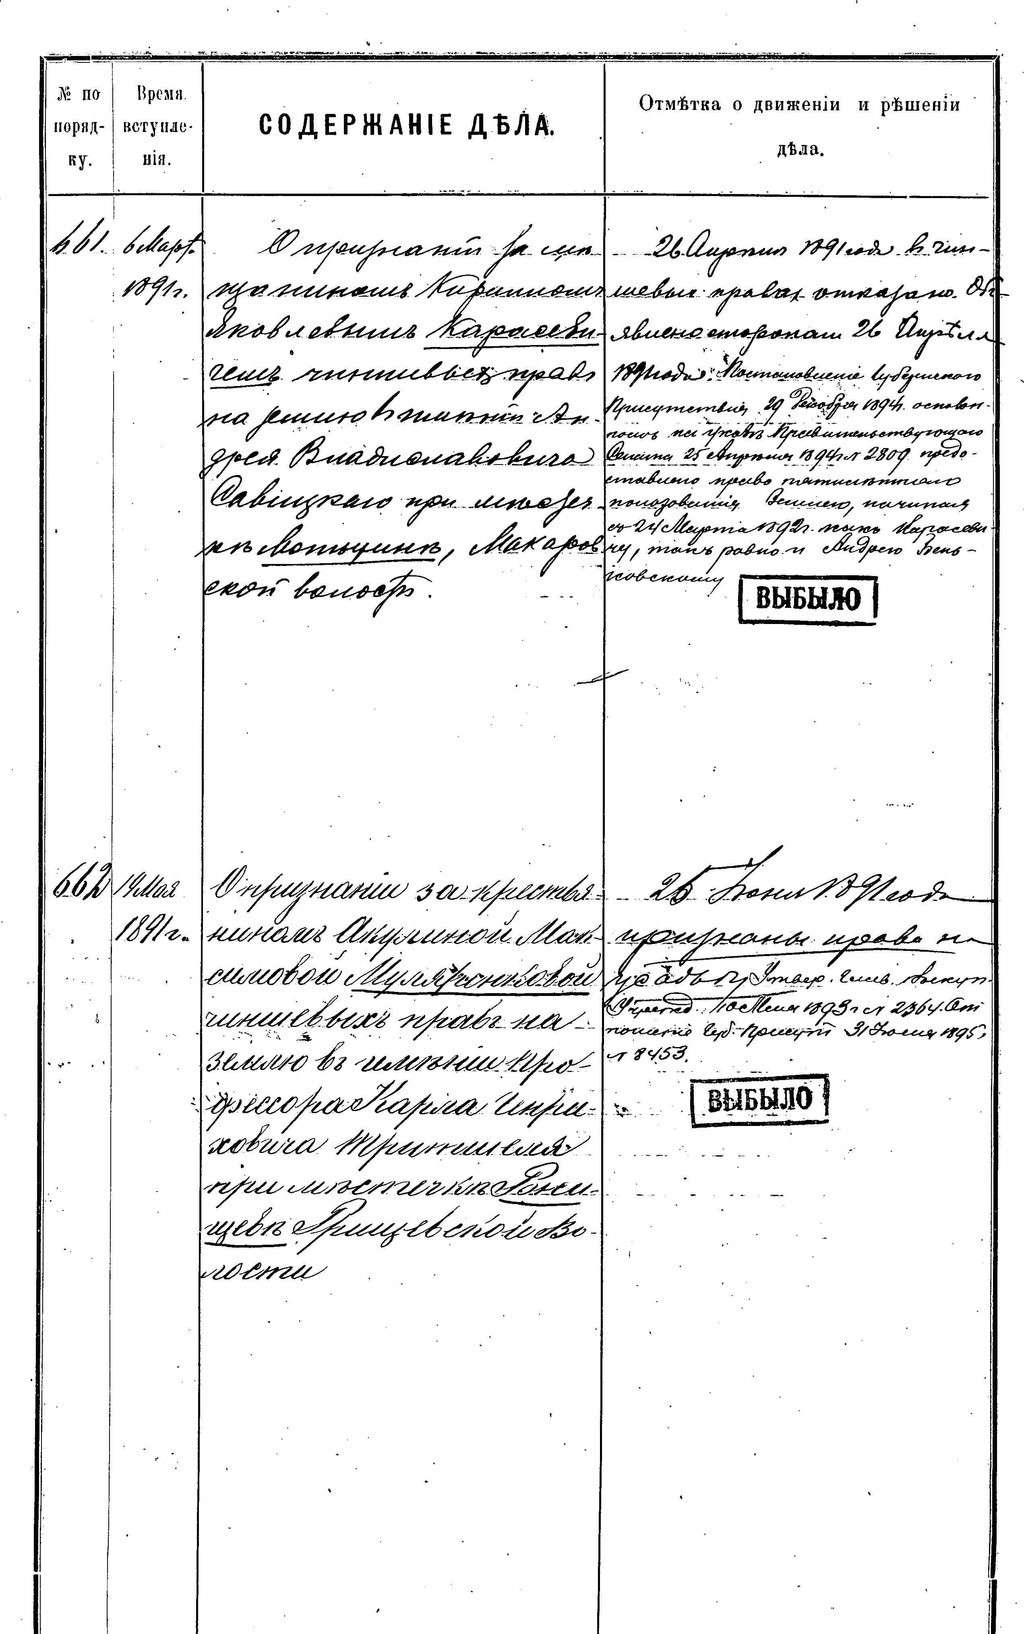 № по
поряд-
ку.
Время
вступле-
нія.
СОДЕРЖАНІЕ ДѢЛА.
Отмѣтка о движеніи и рѣшеніи
дѣла.
661.
6 Март.
1891 г.
О признаніи за мѣ
щаниномъ Кириллом
Яковлевымъ Карасеви-
чемъ чиншевыхъ правъ
на землю в имѣніи Ан-
дрея Владиславовича
Савіцкаго при мѣстеч
кѣ Мотыжинѣ, Макаров
ской волости.
26 Апрѣля 1891 года в чин-
шевых правах отказано. Объ
явлено сторонам 26 Апрѣля
1891 года. Постановленіе Губернского
Присутствія 29 Декабря 1894 г. основан-
ном на указѣ Правительствующаго
Сената 25 Апрѣля 1894 г. № 2809 предо-
ставлено право пятилѣтняго
пользованія землею, начиная
съ 24 Марта 1892 г. какъ Карасеви-
чу, такъ равно и Андрею Бень-
ковскому
ВЫБЫЛО
662
19 Мая
1891 г.
О признаніи за крестья-
нином Акулиной Мак-
симовой
чиншевыхъ правъ на
землю въ имѣніи Про-
фессора Карла Генри-
ховича Тритшеля
при мѣстечкѣ
щевѣ
Во-
лости
25 Іюня 1891 года
признаны права на
усадьбу Утвер. Глав. Выкуп.
Учрежд. Мая 1893 г. № 2364.
Губ. Присутст 31 Іюля 1895,
№ 8453.
ВЫБЫЛО